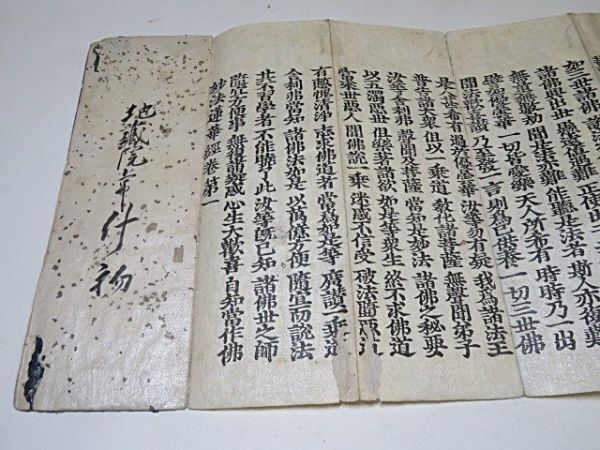 如三世諸佛
諸佛興出世 懸遠值遇難 正使出
無量無數劫 聞是法亦難 能聽是法者 斯人亦復難
譬如優曇華 一切皆愛樂 天人所希有 時時乃一出
聞法歡喜讚 乃至發一言 則為已供養 一切三世佛
是人甚希有 過於優曇華 汝等勿有疑 我為諸法王
普告諸大衆 但以一乗道 教化諸菩薩 無聲聞弟子
汝等舍利弗 聲聞及菩薩 當知是妙法 諸佛之秘要
以五濁惡世 但樂著諸欲 如是等衆生 終不求佛道
當來世惡人 聞佛說一乗 迷惑不信受 破法墮惡道
有慚愧清淨 志求佛道者 當為如是等 廣讚一乗道
舍利弗當知 諸佛法如是 以萬億方便 隨宜而說法
其不習學者 不能曉了此 汝等既已知 諸佛世之師
隨宜方便事 無復諸疑惑 心生大歡喜 自知當作佛
妙法蓮華經卷第一
地藏院常什物